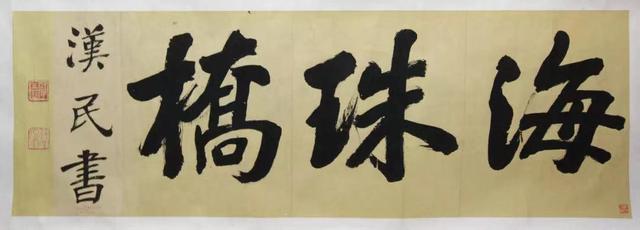 海珠橋
漢民書